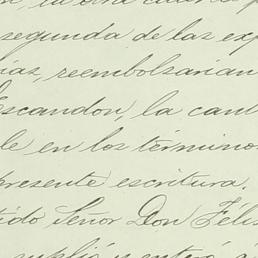 segunda de las ex
ias, reembolsarian
Escandon, la cant
le en los término
presente escritura.
tido Señor Don Feli